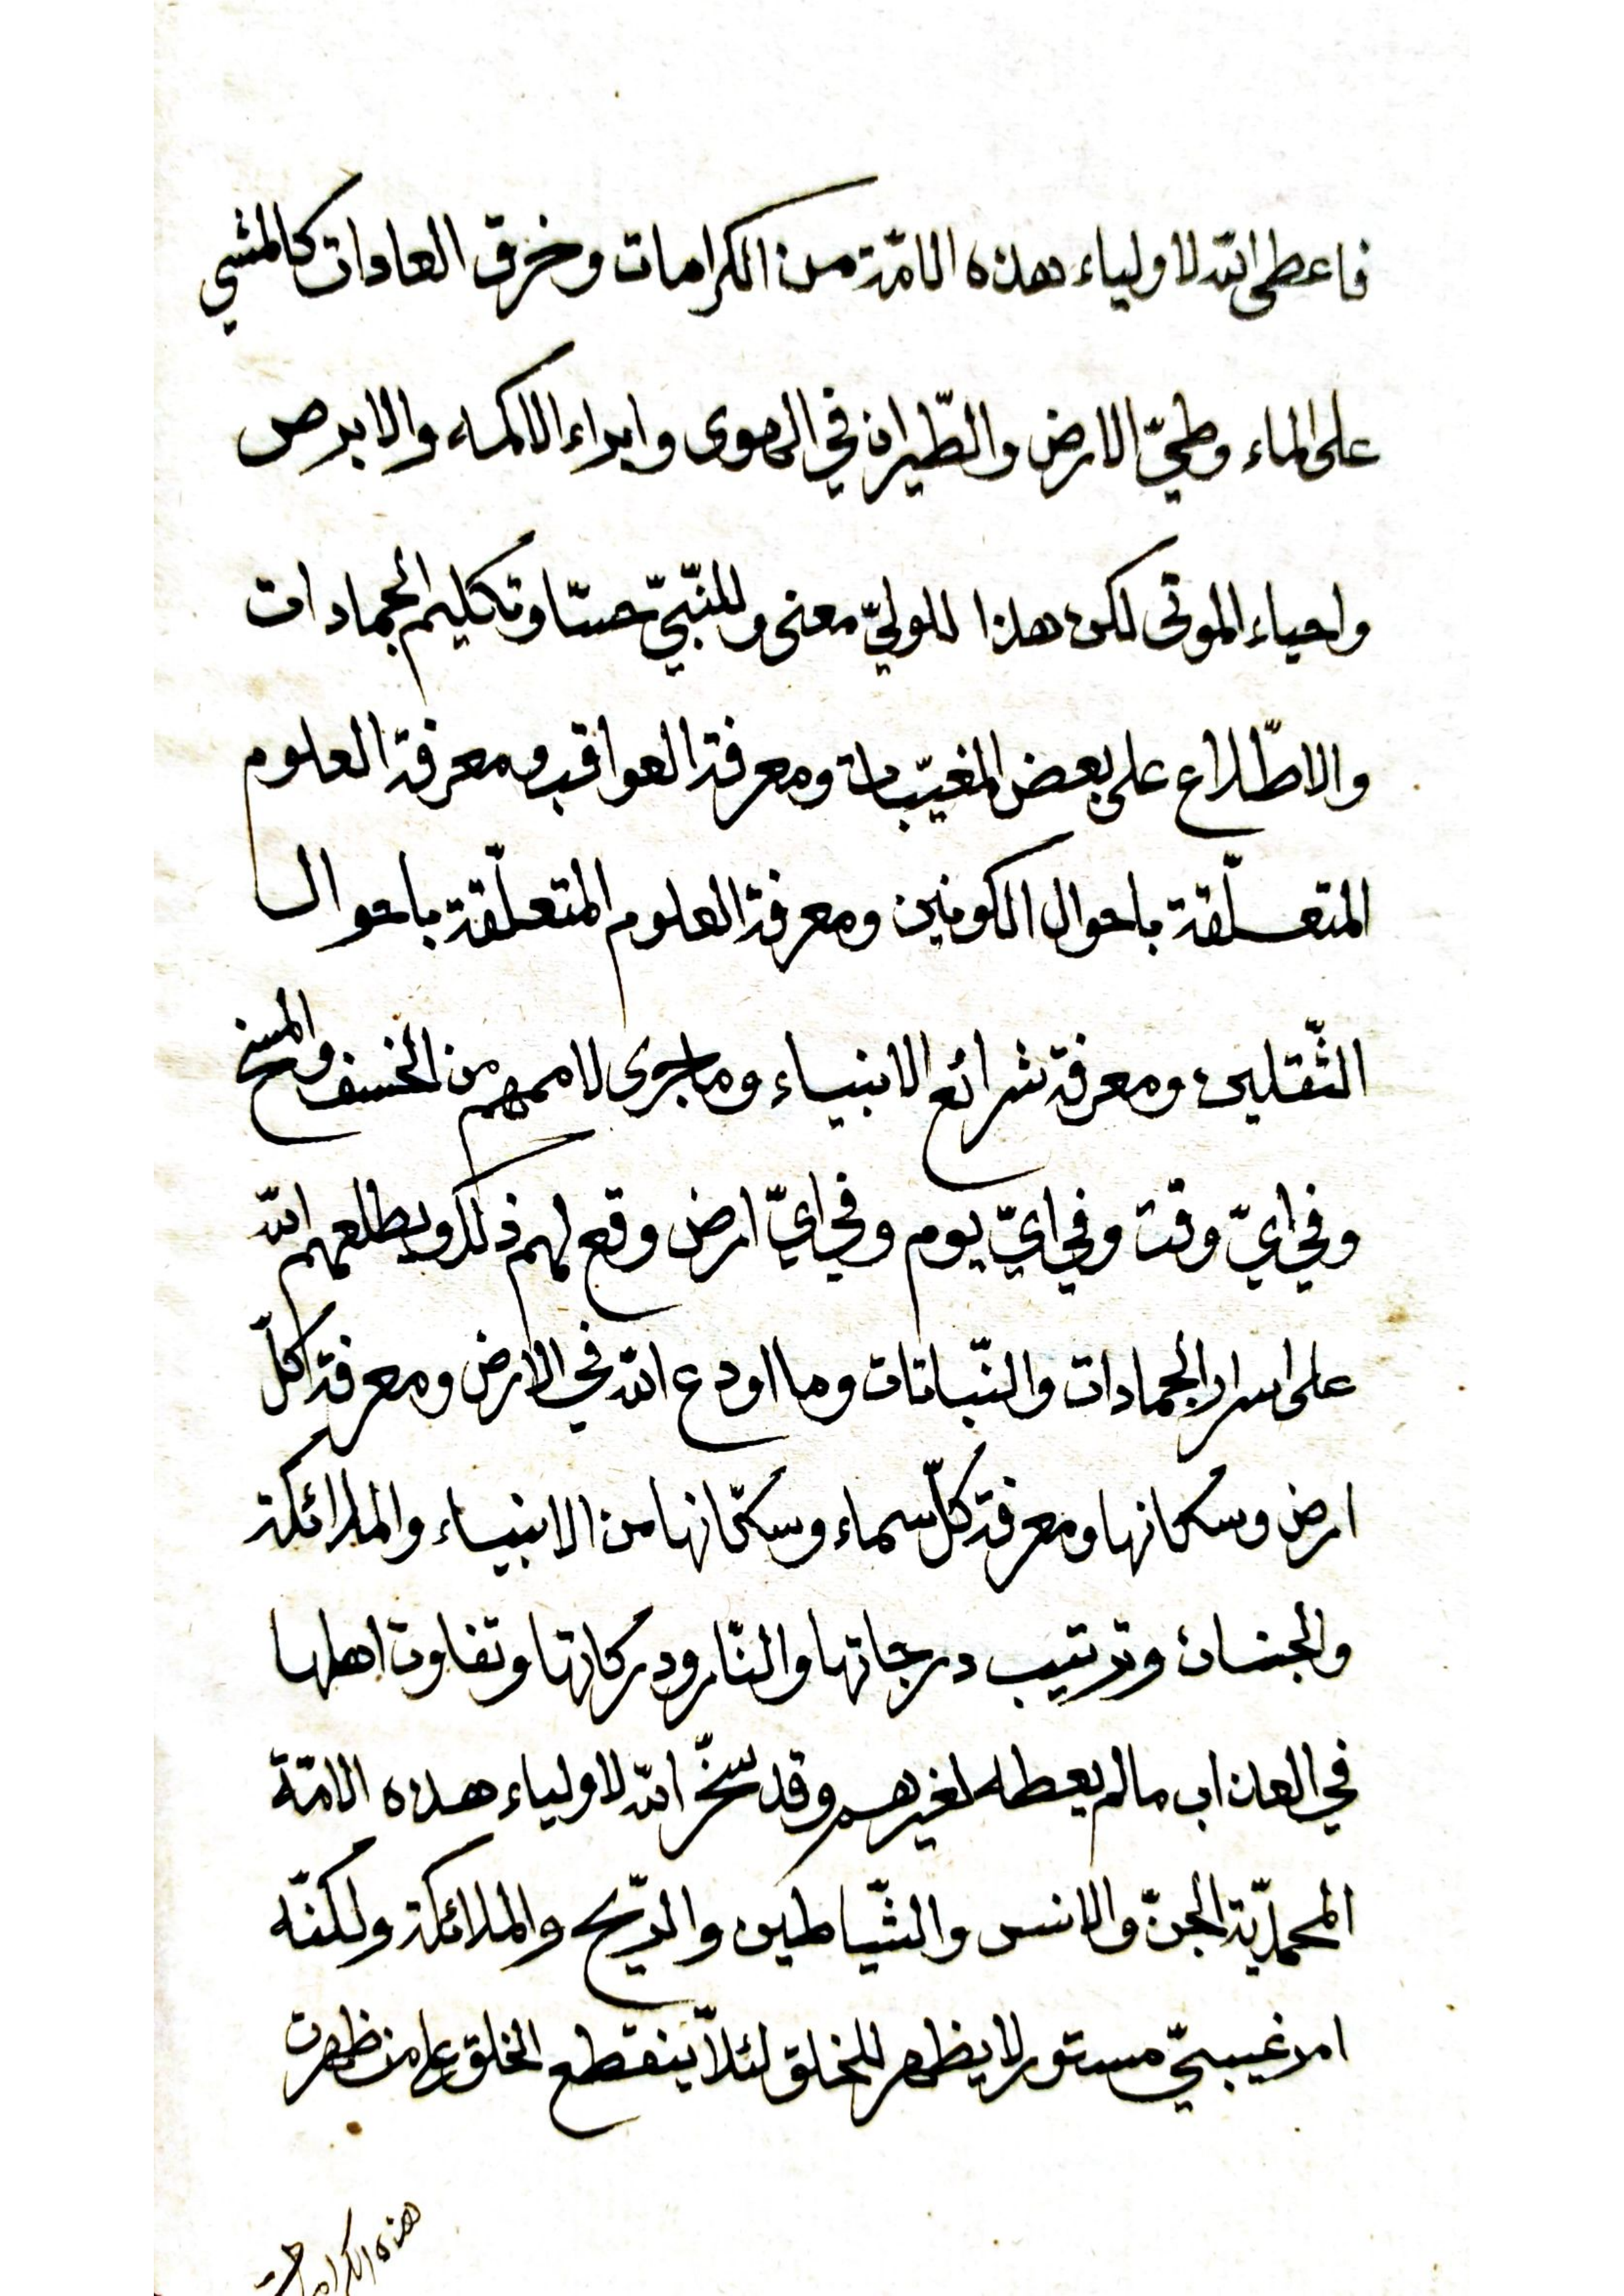 فاعطى الله لاولياء هذه الامّة من الكرامات وخرق العادات كالمشي
على الماء وطيّ الارض والطّيران في الهوى وابراء الاكمه والابرص
واحياء الموتى لكن هذا للوليّ معنى وللنّبيّ حسّا وتكليم الجمادات
والاطّلاع على بعض المغيّبات ومعرفة العواقب ومعرفة العلوم
المتعلّقة باحوال الكونين ومعرفة العلوم المتعلّقة باحوال
الثّقلين ومعرفة شرائع الانبياء وما جرى لاممهم من الخسف والمسخ
وفي ايّ وقت وفي ايّ يوم وفي ايّ ارض وقع لهم ذلك ويطلعهم الله
على اسرار الجمادات والنّباتات وما اودع الله في الارض ومعرفة كلّ
ارض وسكانها ومعرفة كلّ سماء وسكّانها من الانبياء والملائكة
والجنان وترتيب درجاتها والنّار ودركاتها وتفاوت اهلها
في العذاب ما لم يعطه لغيرهم وقد سخّر الله لاولياء هذه الامّة
المحمديّة الجنّ والانس والشّياطين والرّيح والملائكة ولكنّه
امر غيبيّ مستور لا يظهر للخلق لئلاّ ينقطع الخلق على من ظهرت
هذه الكرامات